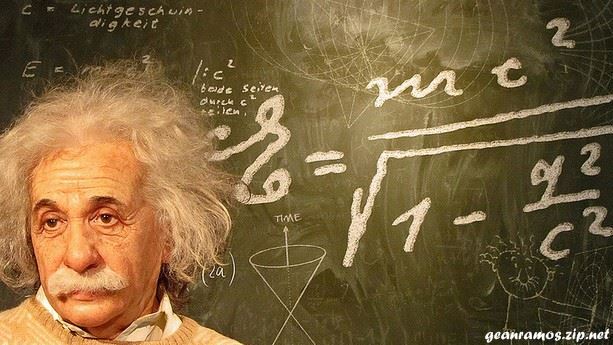 C = Lichtgeschwin-
digkeit
E = m c² /: c²
beide Seiten
durch c²
teilen.
E = mc² / √1 - q²/c²
TIME
(2a)
geanramos.zip.net